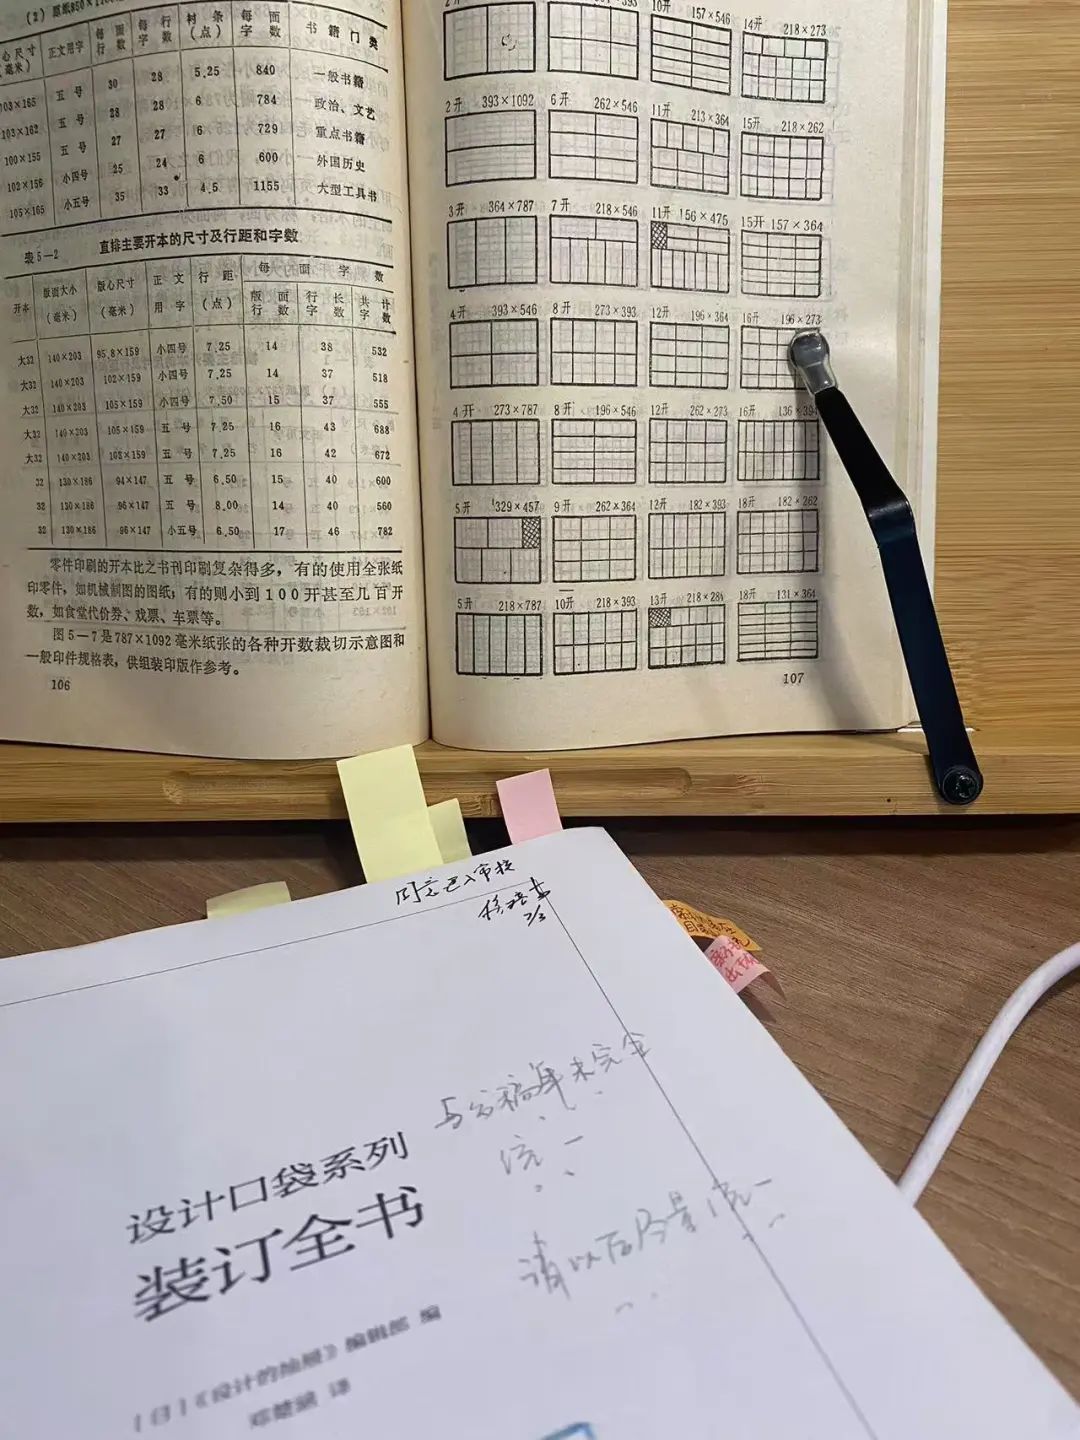 每面行数 每行字数 衬条(点) 每面字数 书籍门类
正文用字
103×165 五号 30 28 5.25 840 一般书籍
103×162 五号 28 28 6 784 政治、文艺
100×155 五号 27 27 6 729 重点书籍
102×156 小四号 25 24 6 600 外国历史
105×165 小五号 35 33 4.5 1155 大型工具书
表5—2 直排主要开本的尺寸及行距和字数
开本 版面大小(毫米) 版心尺寸(毫米) 正文用字 行距(点) 每面字数
版面行数 行长字数 共计字数
大32 140×203 95.8×159 小四号 7.25 14 38 532
大32 140×203 102×159 小四号 7.25 14 37 518
大32 140×203 105×159 小四号 7.50 15 37 555
大32 140×203 105×159 五号 7.25 16 43 688
大32 140×203 102×159 五号 7.25 16 42 672
32 130×186 94×147 五号 6.50 15 40 600
32 130×186 96×147 五号 8.00 14 40 560
32 130×186 96×147 小五号 6.50 17 46 782
零件印刷的开本比之书刊印刷复杂得多，有的使用全张纸
印零件，如机械制图的图纸；有的则小到100开甚至几百开
数，如食堂代价券、戏票、车票等。
图5—7是787×1092毫米纸张的各种开数裁切示意图和
一般印件规格表，供组装印版作参考。
106
10开 157×546 14开 218×273
2开 393×1092 6开 262×546 11开 213×364 15开 218×262
3开 364×787 7开 218×546 11开 156×475 15开 157×364
4开 393×546 8开 273×393 12开 196×364 16开 196×273
4开 273×787 8开 196×546 12开 262×273 16开 136×394
5开 329×457 9开 262×364 12开 182×393 18开 182×262
5开 218×787 10开 218×393 13开 218×284 18开 131×364
107
同意进入审校
2/3
与公稿年未完全
统一
请以后尽量统一
设计口袋系列
装订全书
[日]《设计的抽屉》编辑部 编
邓楚涵 译